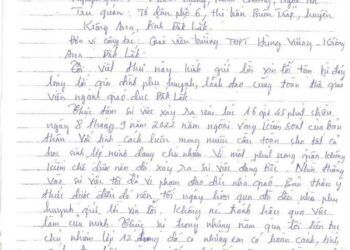 Trú quán: Tổ dân phố 6, thị trấn Buôn Trấp, huyện
Krông Ana, tỉnh Đắk Lắk.
Đơn vị công tác: Giáo viên trường THPT Hùng Vương - Krông
Ana, Đắk Lắk
Tôi viết thư này kính gửi lời xin lỗi tận đáy
lòng tới gia đình phụ huynh, lãnh đạo cùng toàn thể giáo
viên ngành giáo dục Đắk Lắk.
sự việc xảy ra vào lúc 16 giờ 45 phút chiều
ngày 8 tháng 9 năm 2022 nằm ngoài vòng kiểm soát của bản
thân. Với tính cách luôn mong muốn cầu toàn cho tất cả
học sinh lớp mình đang chủ nhiệm. Vì một phút nóng giận không
kiềm chế được nên đã xảy ra sự việc đáng tiếc. Nhìn thẳng
vào sự việc tôi đã vi phạm đạo đức nhà giáo. Bản thân ý
thức được điều đó nên tối ngày hôm qua đó đến nhà phụ
huynh gửi lời xin lỗi. Không né tránh hậu quả việc
làm của mình. sự trong những năm qua tôi liên tục
chủ nhiệm lớp 12 trong đó có những em có hoàn cảnh